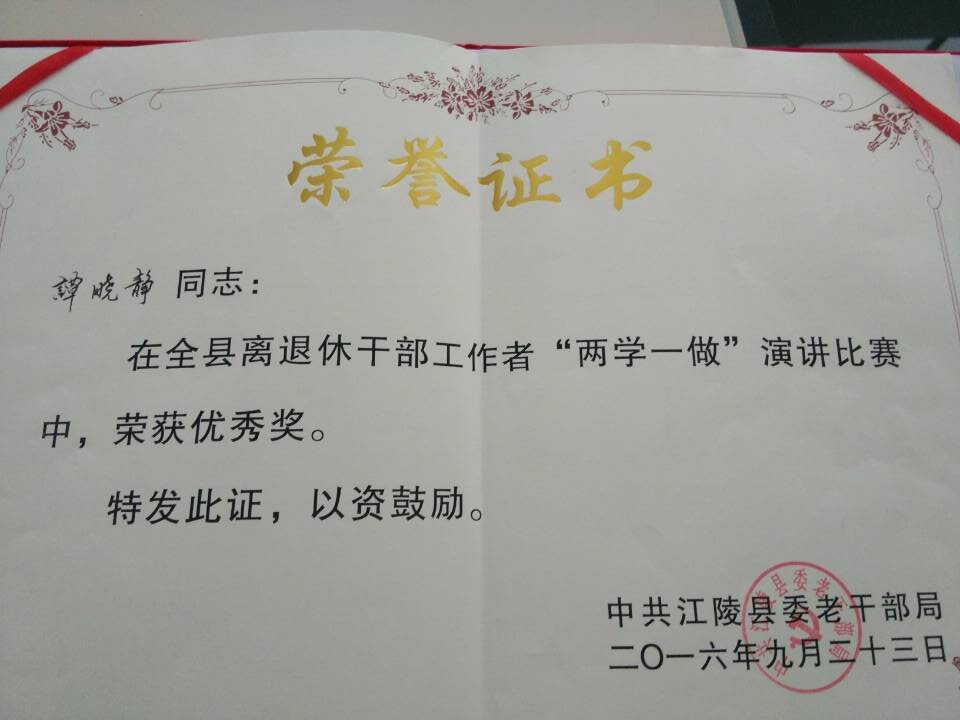 荣誉证书
譚晓静 同志：
在全县离退休干部工作者“两学一做”演讲比赛
中，荣获优秀奖。
特发此证，以资鼓励。
中共江陵县委老干部局
二〇一六年九月二十三日
中共江陵县委老干部局